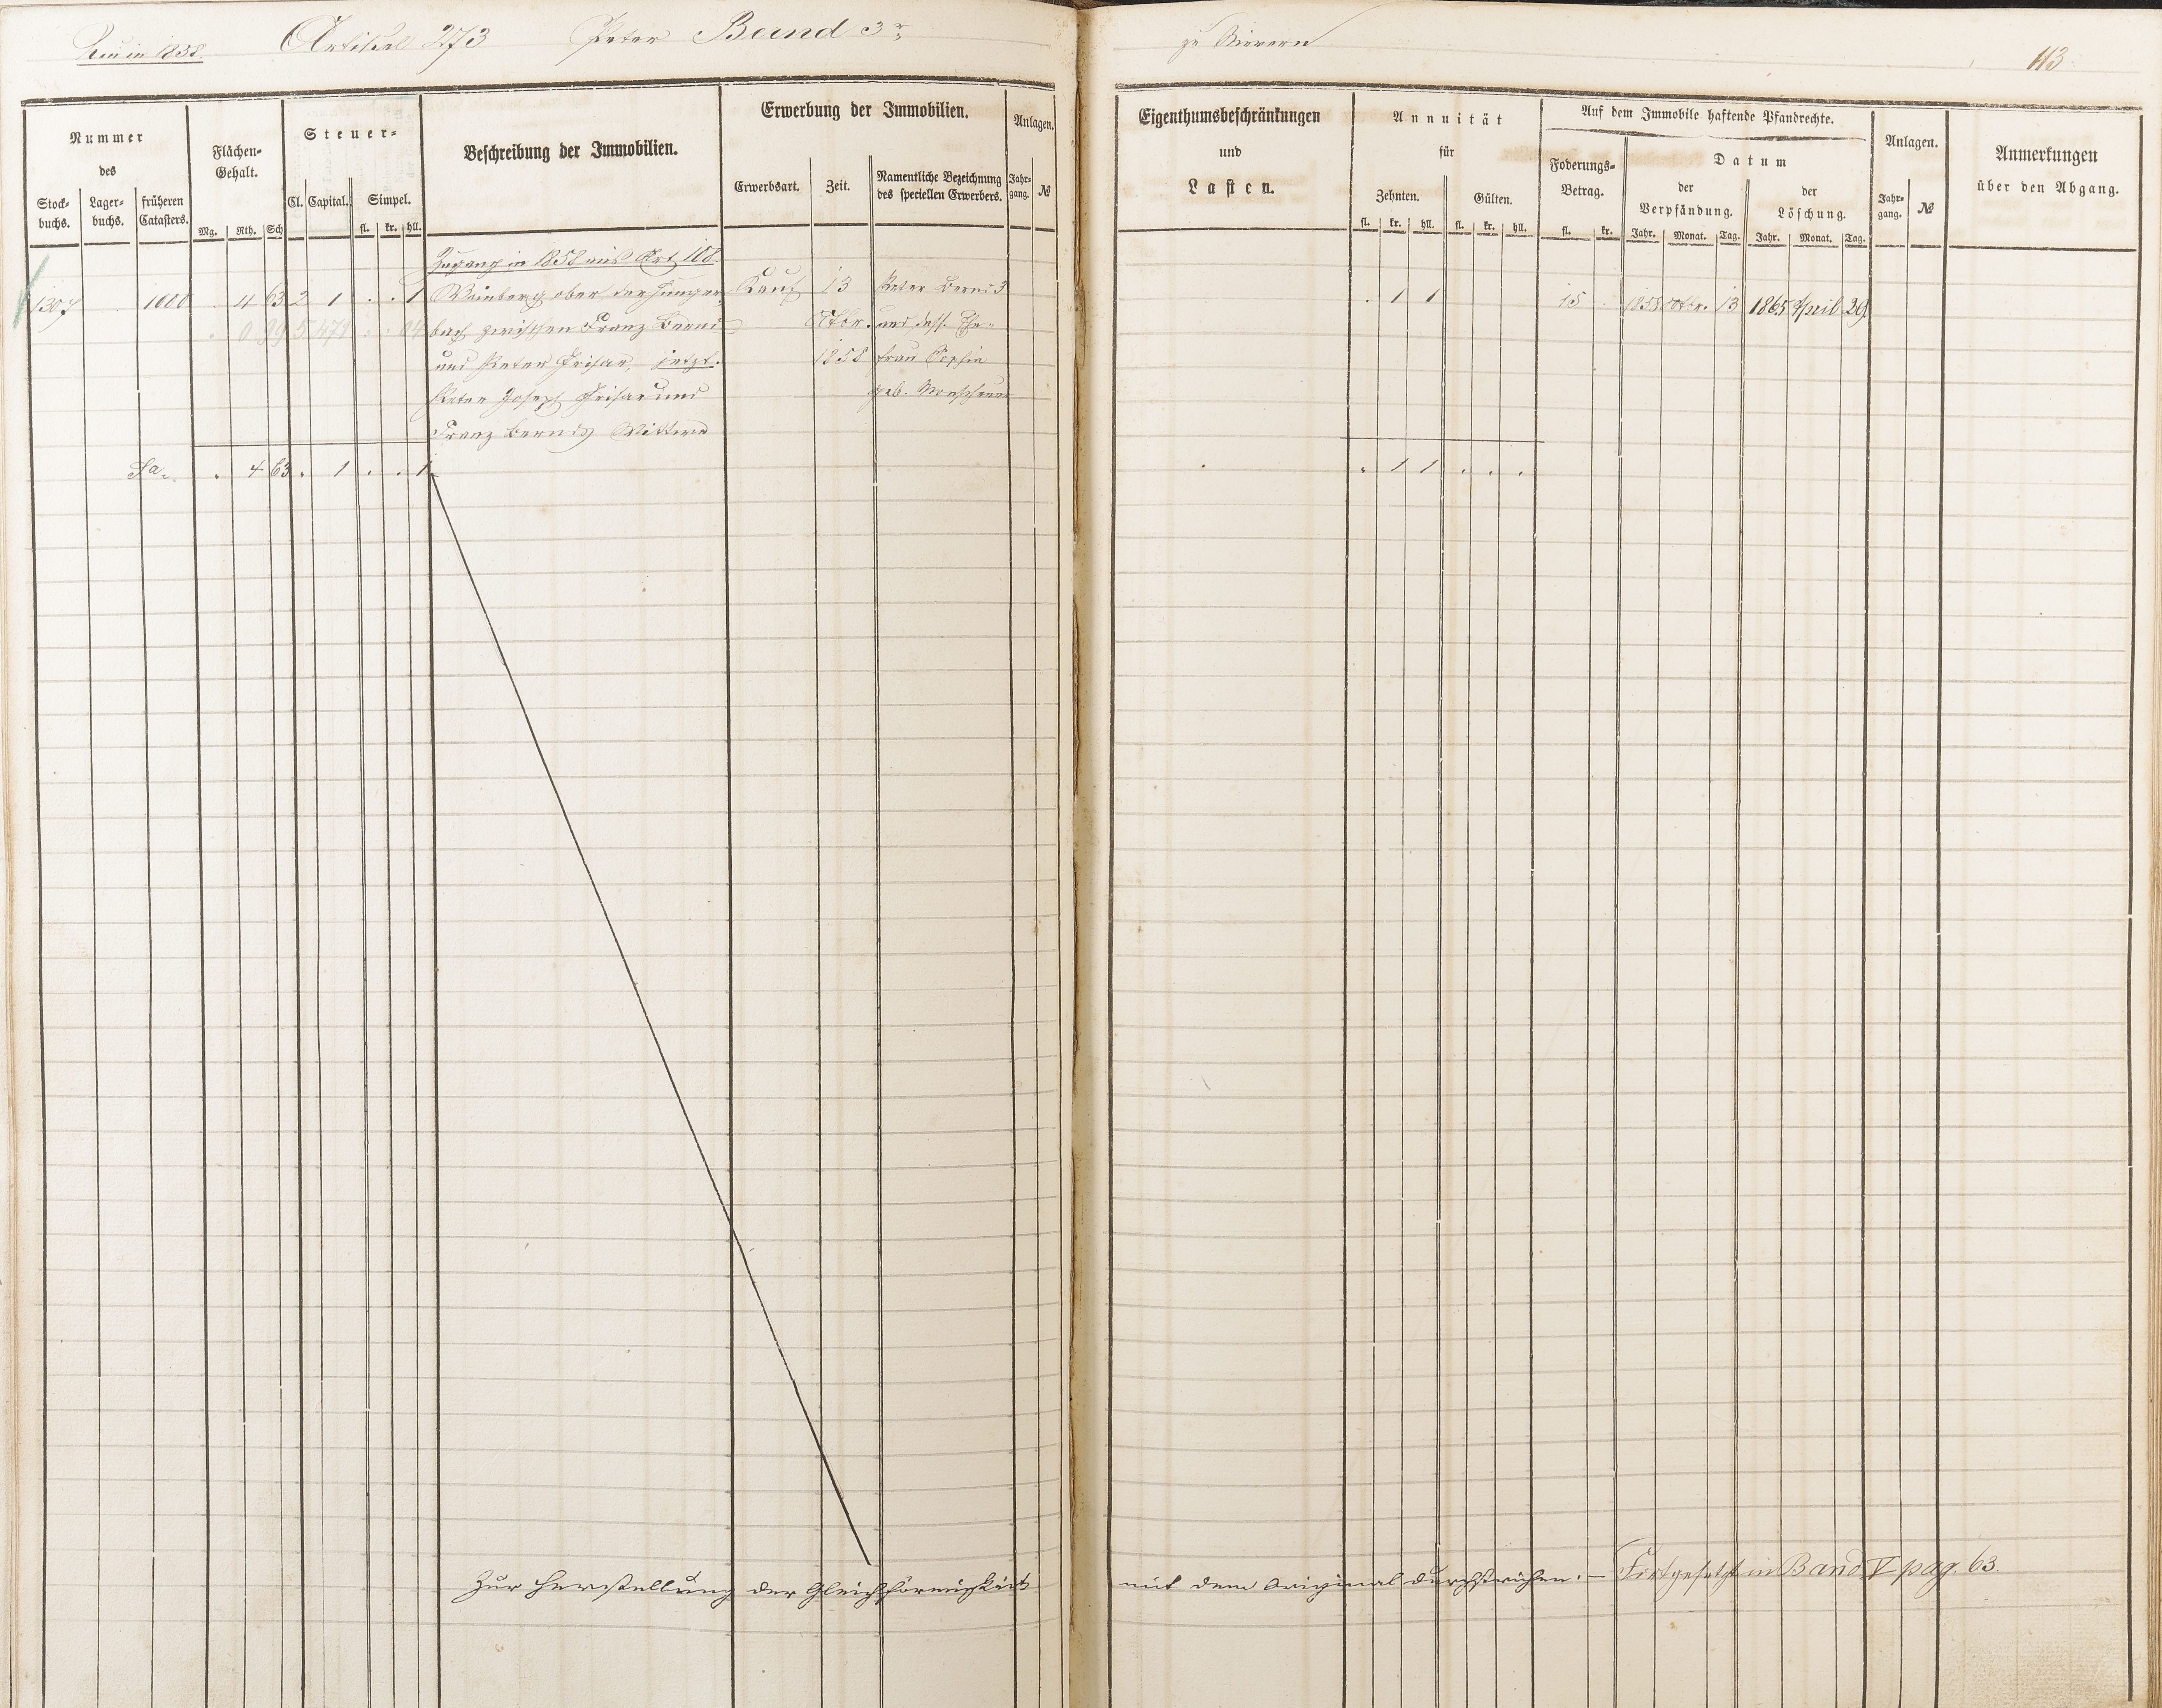 Neu in 1858. Artikel 273 Peter Bernd 3r
zu Nievern
113
Nummer
des
Stock-
buchs.
Lager-
buchs.
früheren
Catasters.
Flächen-
Gehalt.
Mg. Rth. Sch
Steuer-
Cl. Capital. Simpel.
fl. kr. hll.
Beschreibung der Immobilien.
Erwerbung der Immobilien.
Erwerbsart. Zeit.
Namentliche Bezeichnung
des speciellen Erwerbers.
Anlagen.
Jahr-
gang. №
Eigenthumsbeschränkungen
und
Lasten.
Annuität
für
Zehnten. Gülten.
fl. kr. hll. fl. kr. hll.
Auf dem Immobile haftende Pfandrechte.
Foderungs-
Betrag.
fl. kr.
Datum
der
Verpfändung.
Jahr. Monat. Tag.
der
Löschung.
Jahr. Monat. Tag.
Anlagen.
Jahr-
gang. №
Anmerkungen
über den Abgang.
Zugang in 1858 aus Art. 168.
1307 1000 . 4 63 2 1 . . 1 Weinberg ober der Hunger- Kauf 13 Peter Bernd 3 . 1 1 15 . 1858 Octbr. 13 1865 April 29.
. 0 99 5 471 . . 04 bach zwischen Franz Bernd Octbr. und dess. Ehe-
und Peter Frisar, jetzt. 1858 frau Sophie
Peter Joseph Frisar und geb.
Franz Bernds Wittwe
Sa. . 4 63 . 1 . . 1 . 1 1 . . .
Zur Herstellung der Gleichförmigkeit mit dem Original durchstrichen. — Fortgesetzt in Band V pag. 63.